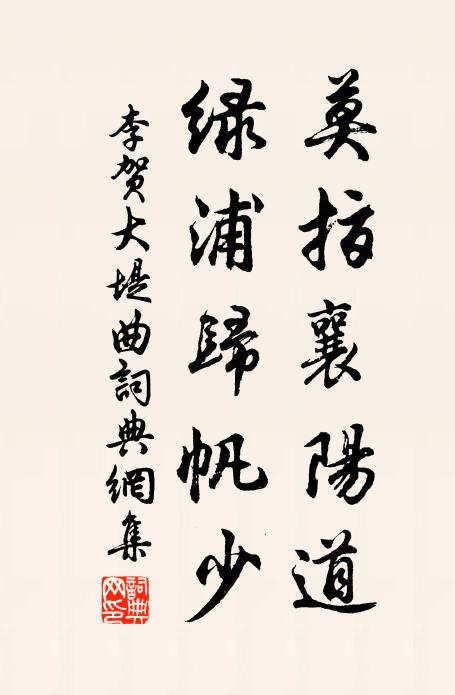 莫指襄陽道
緑浦歸帆少
李賀大堤曲詞典網集
詞典网印